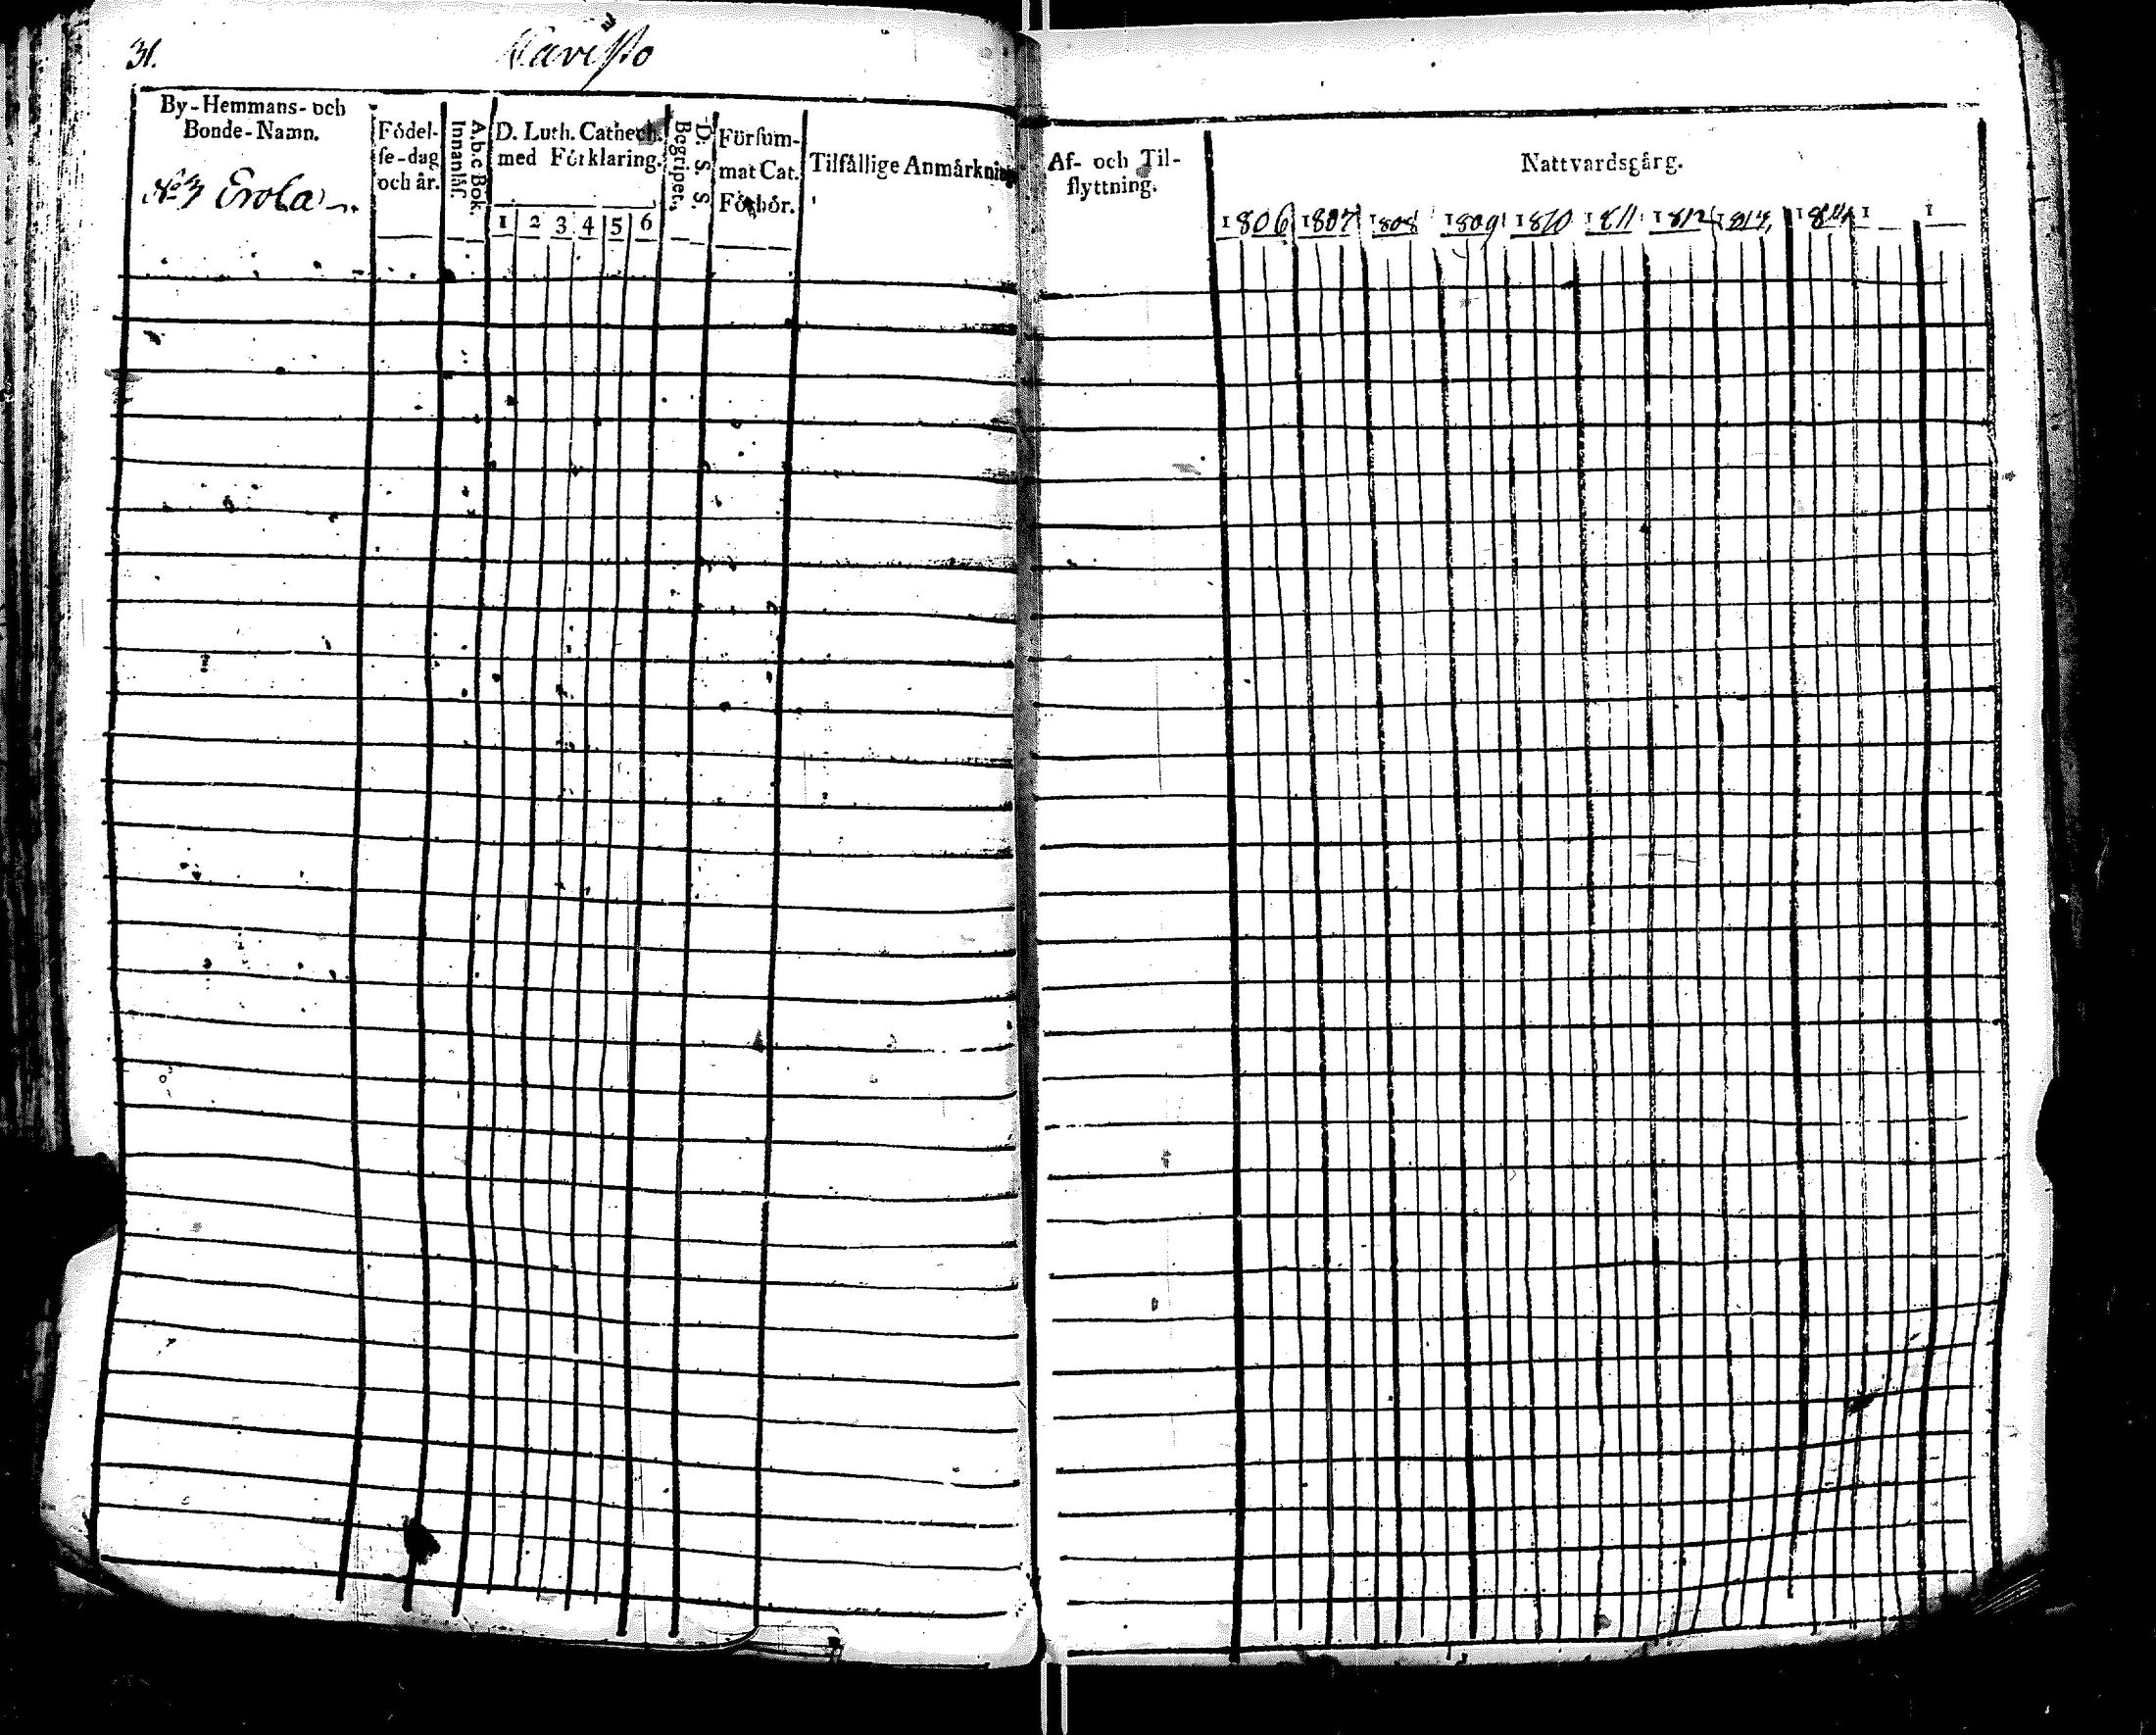 31.
Tavisto
By-Hemmans- och
Bonde-Namn.
No 3 Erola
Födel-
se-dag
och år.
A.b.c.Bok.
Innanläs.
D. Luth. Cathech.
med Förklaring.
1 2 3 4 5 6
D. S. S.
Begriper.
Försum-
mat Cat.
Förhör.
Tilfällige Anmärkning
Af- och Til-
flyttning.
Nattvardsgång.
1806 1807 1808 1809 1810 1811 1812 1 1 1